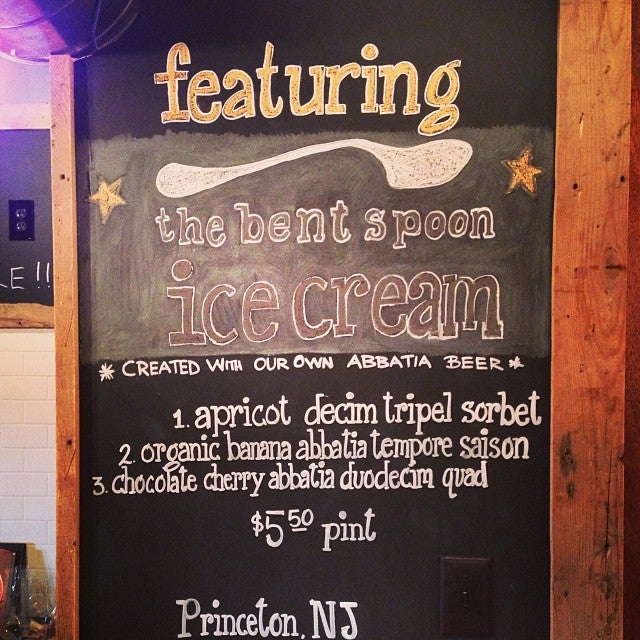 featuring
the bent spoon
ice cream
* CREATED WITH OUR OWN ABBATIA BEER *
1. apricot decim tripel sorbet
2. organic banana abbatia tempore saison
3. chocolate cherry abbatia duodecim quad
$5.50 pint
Princeton, NJ
E!!